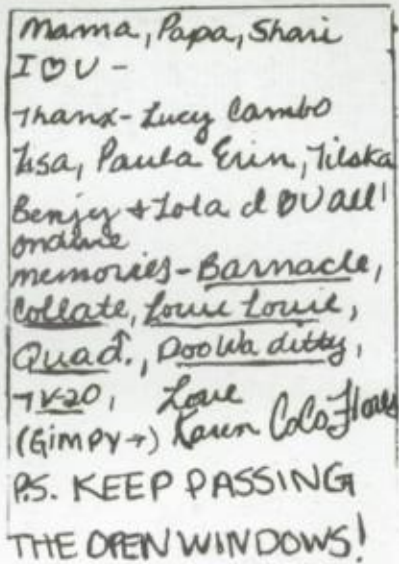 Mama, Papa, Shari
I ♡ U -
Thanx - Lucy Cambo
Lisa, Paula Erin, Tilska
Benjy + Lola I ♡ U all!
ondine
memories - Barnacle,
Collate, Louie Louie,
Quad., Doo Wa ditty,
TV-20, Love
(Gimpy →) Karen CoCo Flores
P.S. KEEP PASSING
THE OPEN WINDOWS!